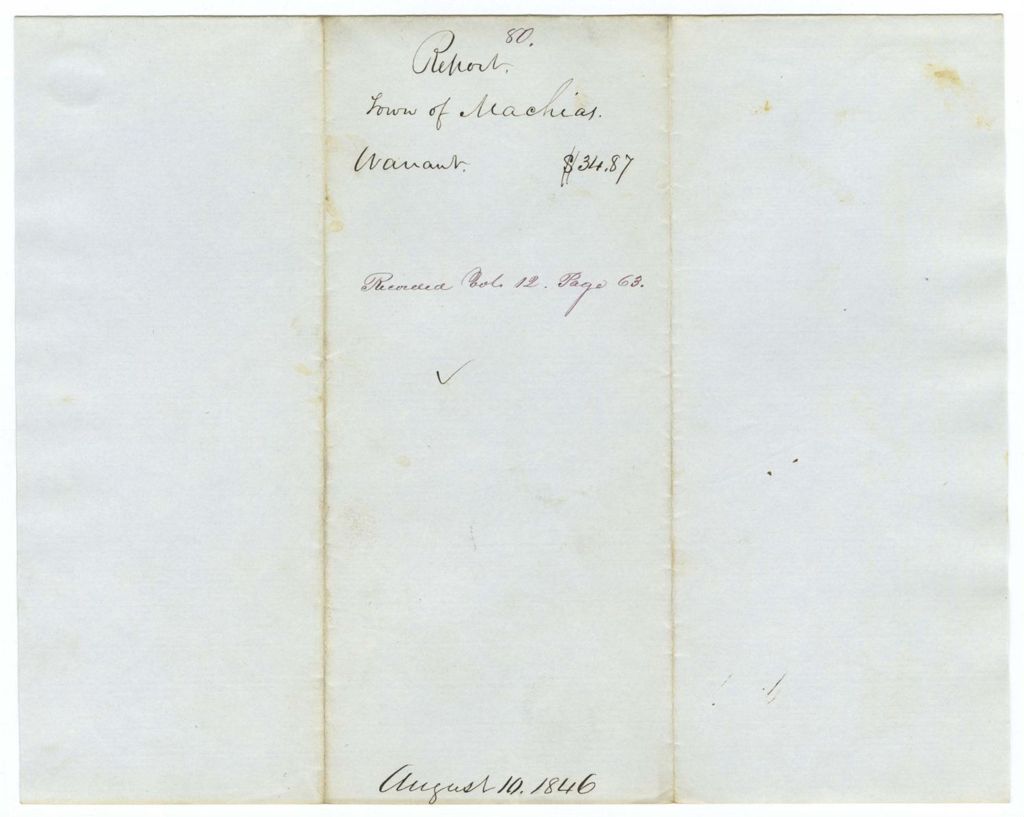 80.
Report.
Town of Machias.
Warrant. $34.87
Recorded Vol. 12. Page 63.
August 10. 1846